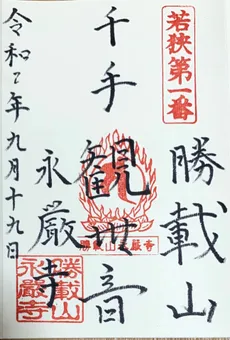 若狭第一番
勝載山
千手
觀世音
永嚴寺
令和2年九月十九日
勝載山永嚴寺
勝載山
永嚴寺